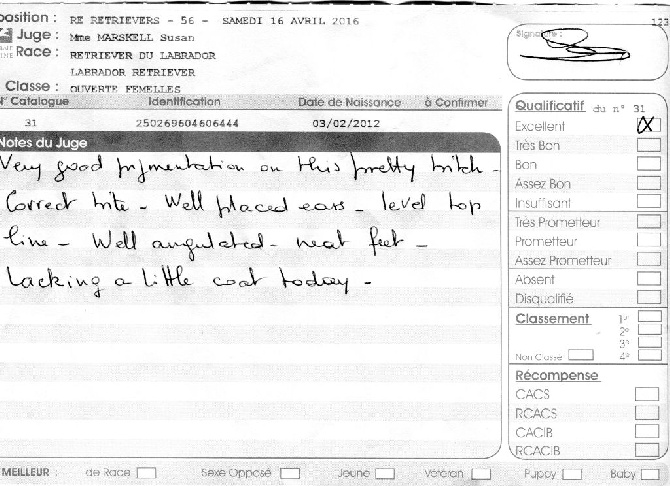 position : RE RETRIEVERS - 56 - SAMEDI 16 AVRIL 2016
123
Juge : Mme MARSKELL Susan
Signature :
Race : RETRIEVER DU LABRADOR
LABRADOR RETRIEVER
Classe : OUVERTE FEMELLES
N° Catalogue Identification Date de Naissance à Confirmer
31 250269604606444 03/02/2012
Notes du Juge
Very good pigmentation on this pretty bitch -
Correct bite - Well placed ears - level top
line - Well angulated - neat feet -
Lacking a little coat today -
Qualificatif du n° 31
Excellent X
Très Bon
Bon
Assez Bon
Insuffisant
Très Prometteur
Prometteur
Assez Prometteur
Absent
Disqualifié
Classement 1°
2°
3°
Non Classé 4°
Récompense
CACS
RCACS
CACIB
RCACIB
MEILLEUR : de Race Sexe Opposé Jeune Vétéran Puppy Baby